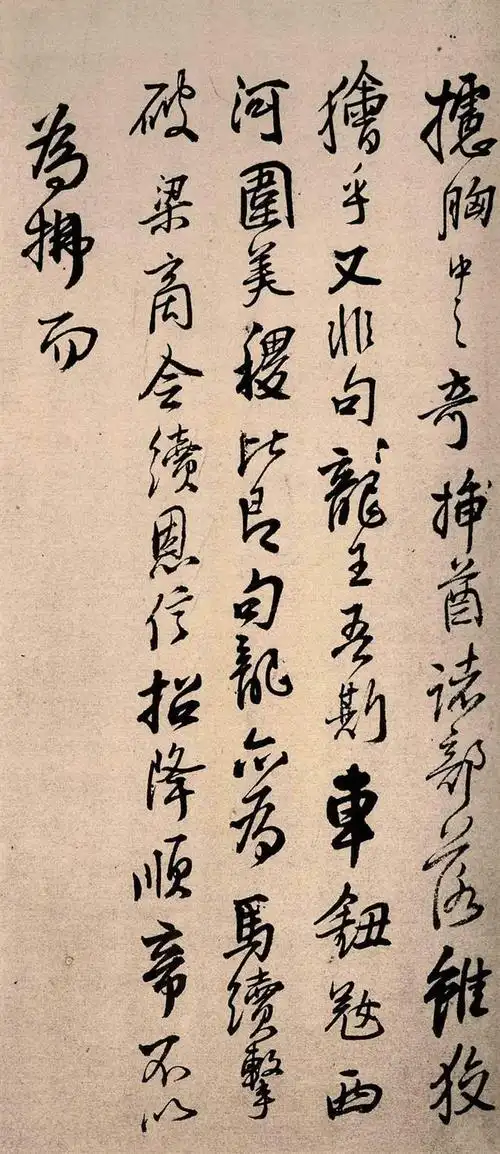 攄胸中之奇捕酋諸部落雖狡
獪乎又非句龍王吾斯車鈕寇西
河圍美稷比昂句龍亦為馬續擊
破梁商令續恩信招降順帝不以
為拂而